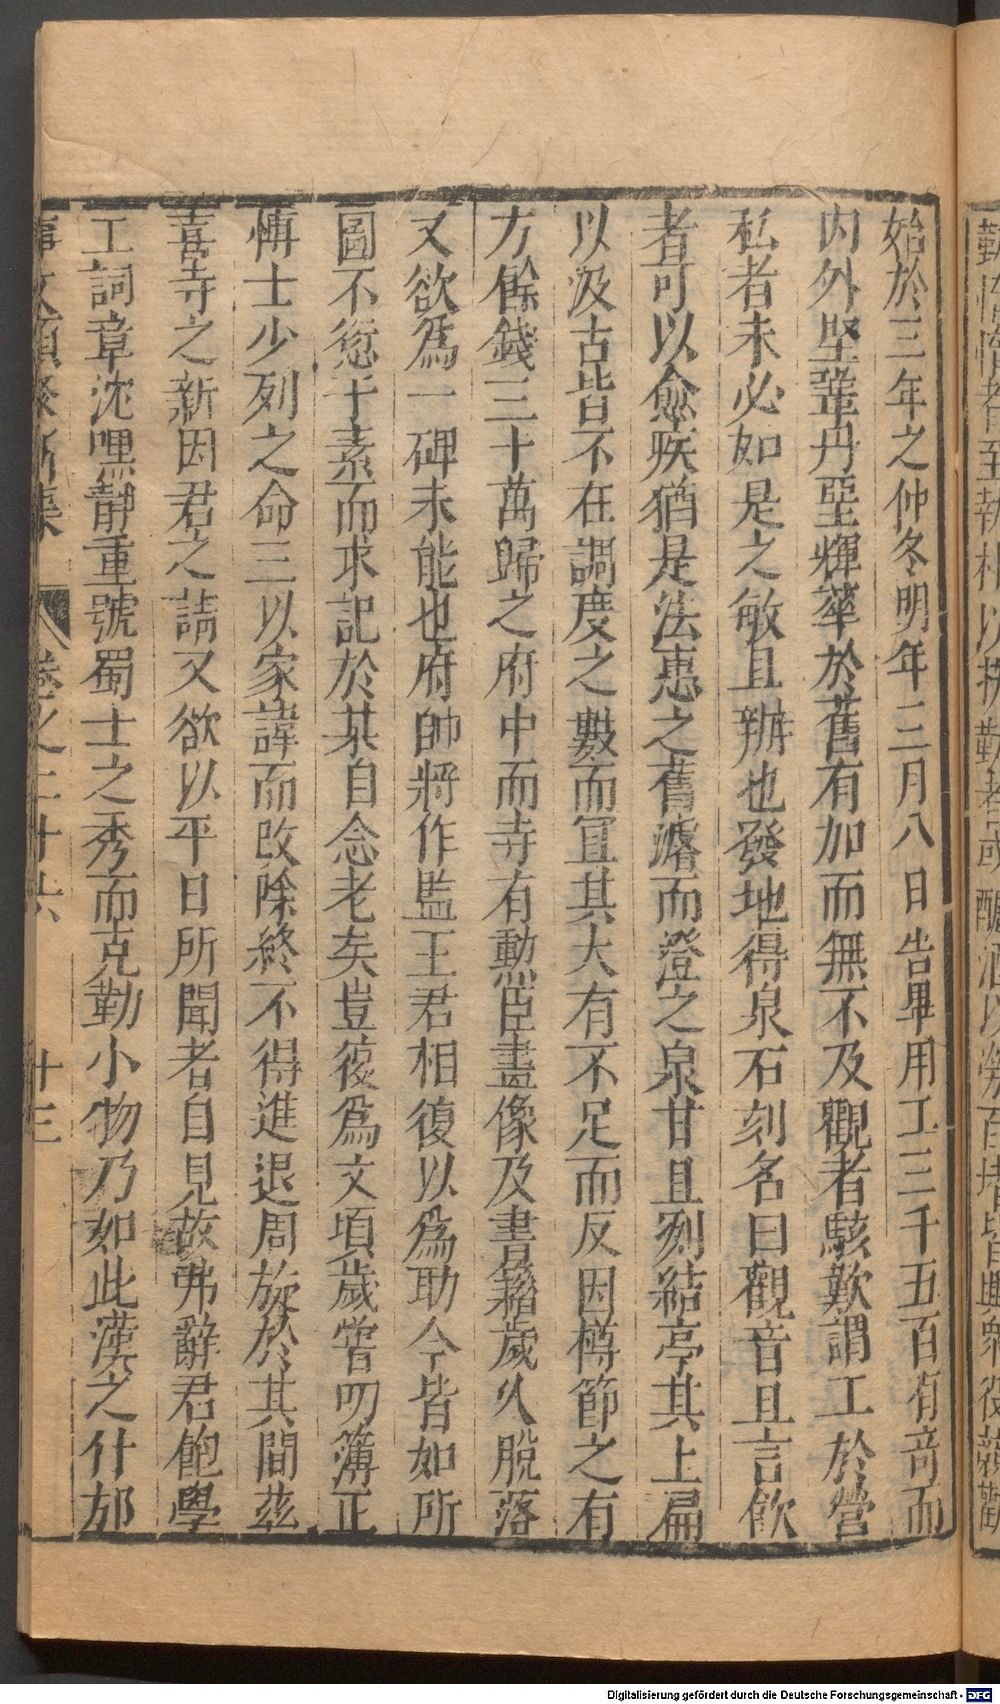 始於三年之仲冬明年三月八日告畢用工三千五百有奇而
内外堅鞏丹堊輝萃於舊有加而無不及觀者駭歎謂工於營
私者未必如是之敏且辦也發地得泉石刻名曰觀音且言飲
者可以愈疾猶是法惠之舊濬而澄之泉甘且冽結亭其上扁
以汲古皆不在調度之數而冝其大有不足而反因樽節之有
方餘錢三十萬歸之府中而寺有勲臣畫像及書籍歲久脫落
又欲爲一碑未能也府帥將作監王君相復以爲助今皆如所
圖不愆于素而求記於某自念老矣豈復爲文頃歲嘗叨簿正
傅士少列之命三以家諱而改除終不得進退周旋於其間茲
喜寺之新因君之請又欲以平日所聞者自見故弗辭君飽學
工詞章沈嘿靜重號蜀士之秀而克勤小物乃如此漢之什邡
事文類聚新集 卷之三十六 十三
Digitalisierung gefördert durch die Deutsche Forschungsgemeinschaft - DFG